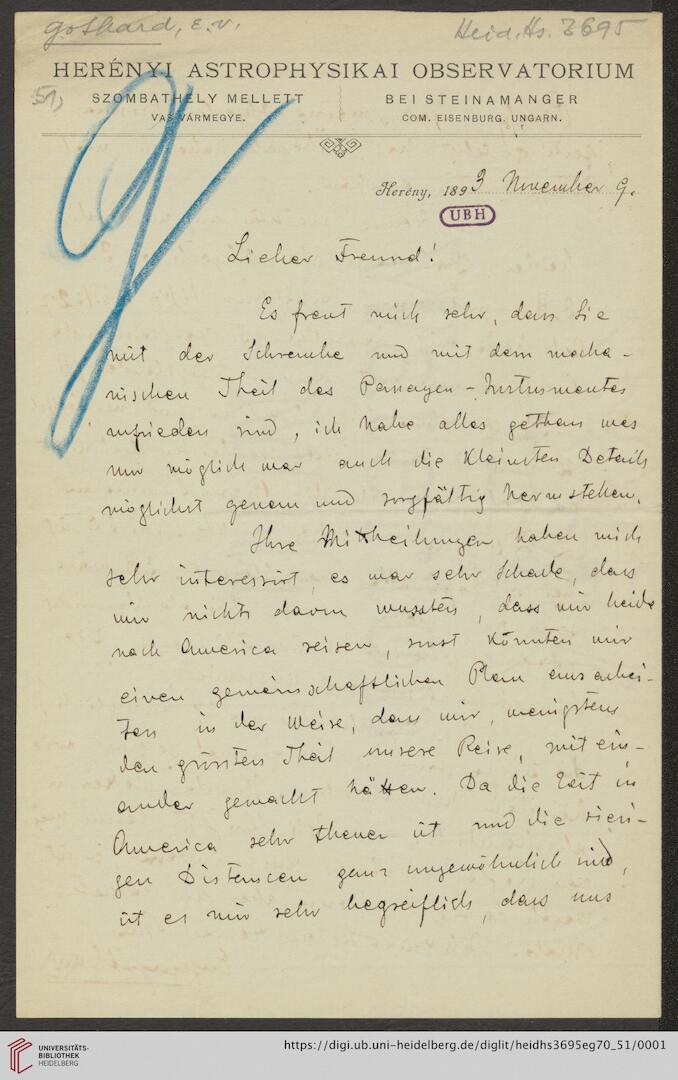 gothard, E. v.
Heid. Hs. 3695
51,
HERÉNYI ASTROPHYSIKAI OBSERVATORIUM
SZOMBATHELY MELLETT
VAS VÁRMEGYE.
BEI STEINAMANGER
COM. EISENBURG. UNGARN.
Herény, 1893 November 9.
UBH
Lieber Freund!
Es freut mich sehr, dass Sie
mit der Schraube und mit dem mecha-
nischen Theil des Passagen-Instrumentes
zufrieden sind, ich habe alles gethan was
nur möglich war auch die kleinsten Details
möglichst genau und sorgfältig herzustellen.
Ihre Mittheilungen haben mich
sehr interessirt, es war sehr Schade, dass
wir nichts davon wussten, dass wir beide
nach America reisen, sonst könnten wir
einen gemeinschaftlichen Plan ausarbei-
ten in der Weise, dass wir, wenigstens
den grössten Theil unsere Reise, mit ein-
ander gemacht hätten. Da die Zeit in
America sehr theuer ist und die riesi-
gen Distancen ganz ungewöhnlich sind,
ist es mir sehr begreiflich, dass uns
UNIVERSITÄTS-
BIBLIOTHEK
HEIDELBERG
https://digi.ub.uni-heidelberg.de/diglit/heidhs3695eg70_51/0001